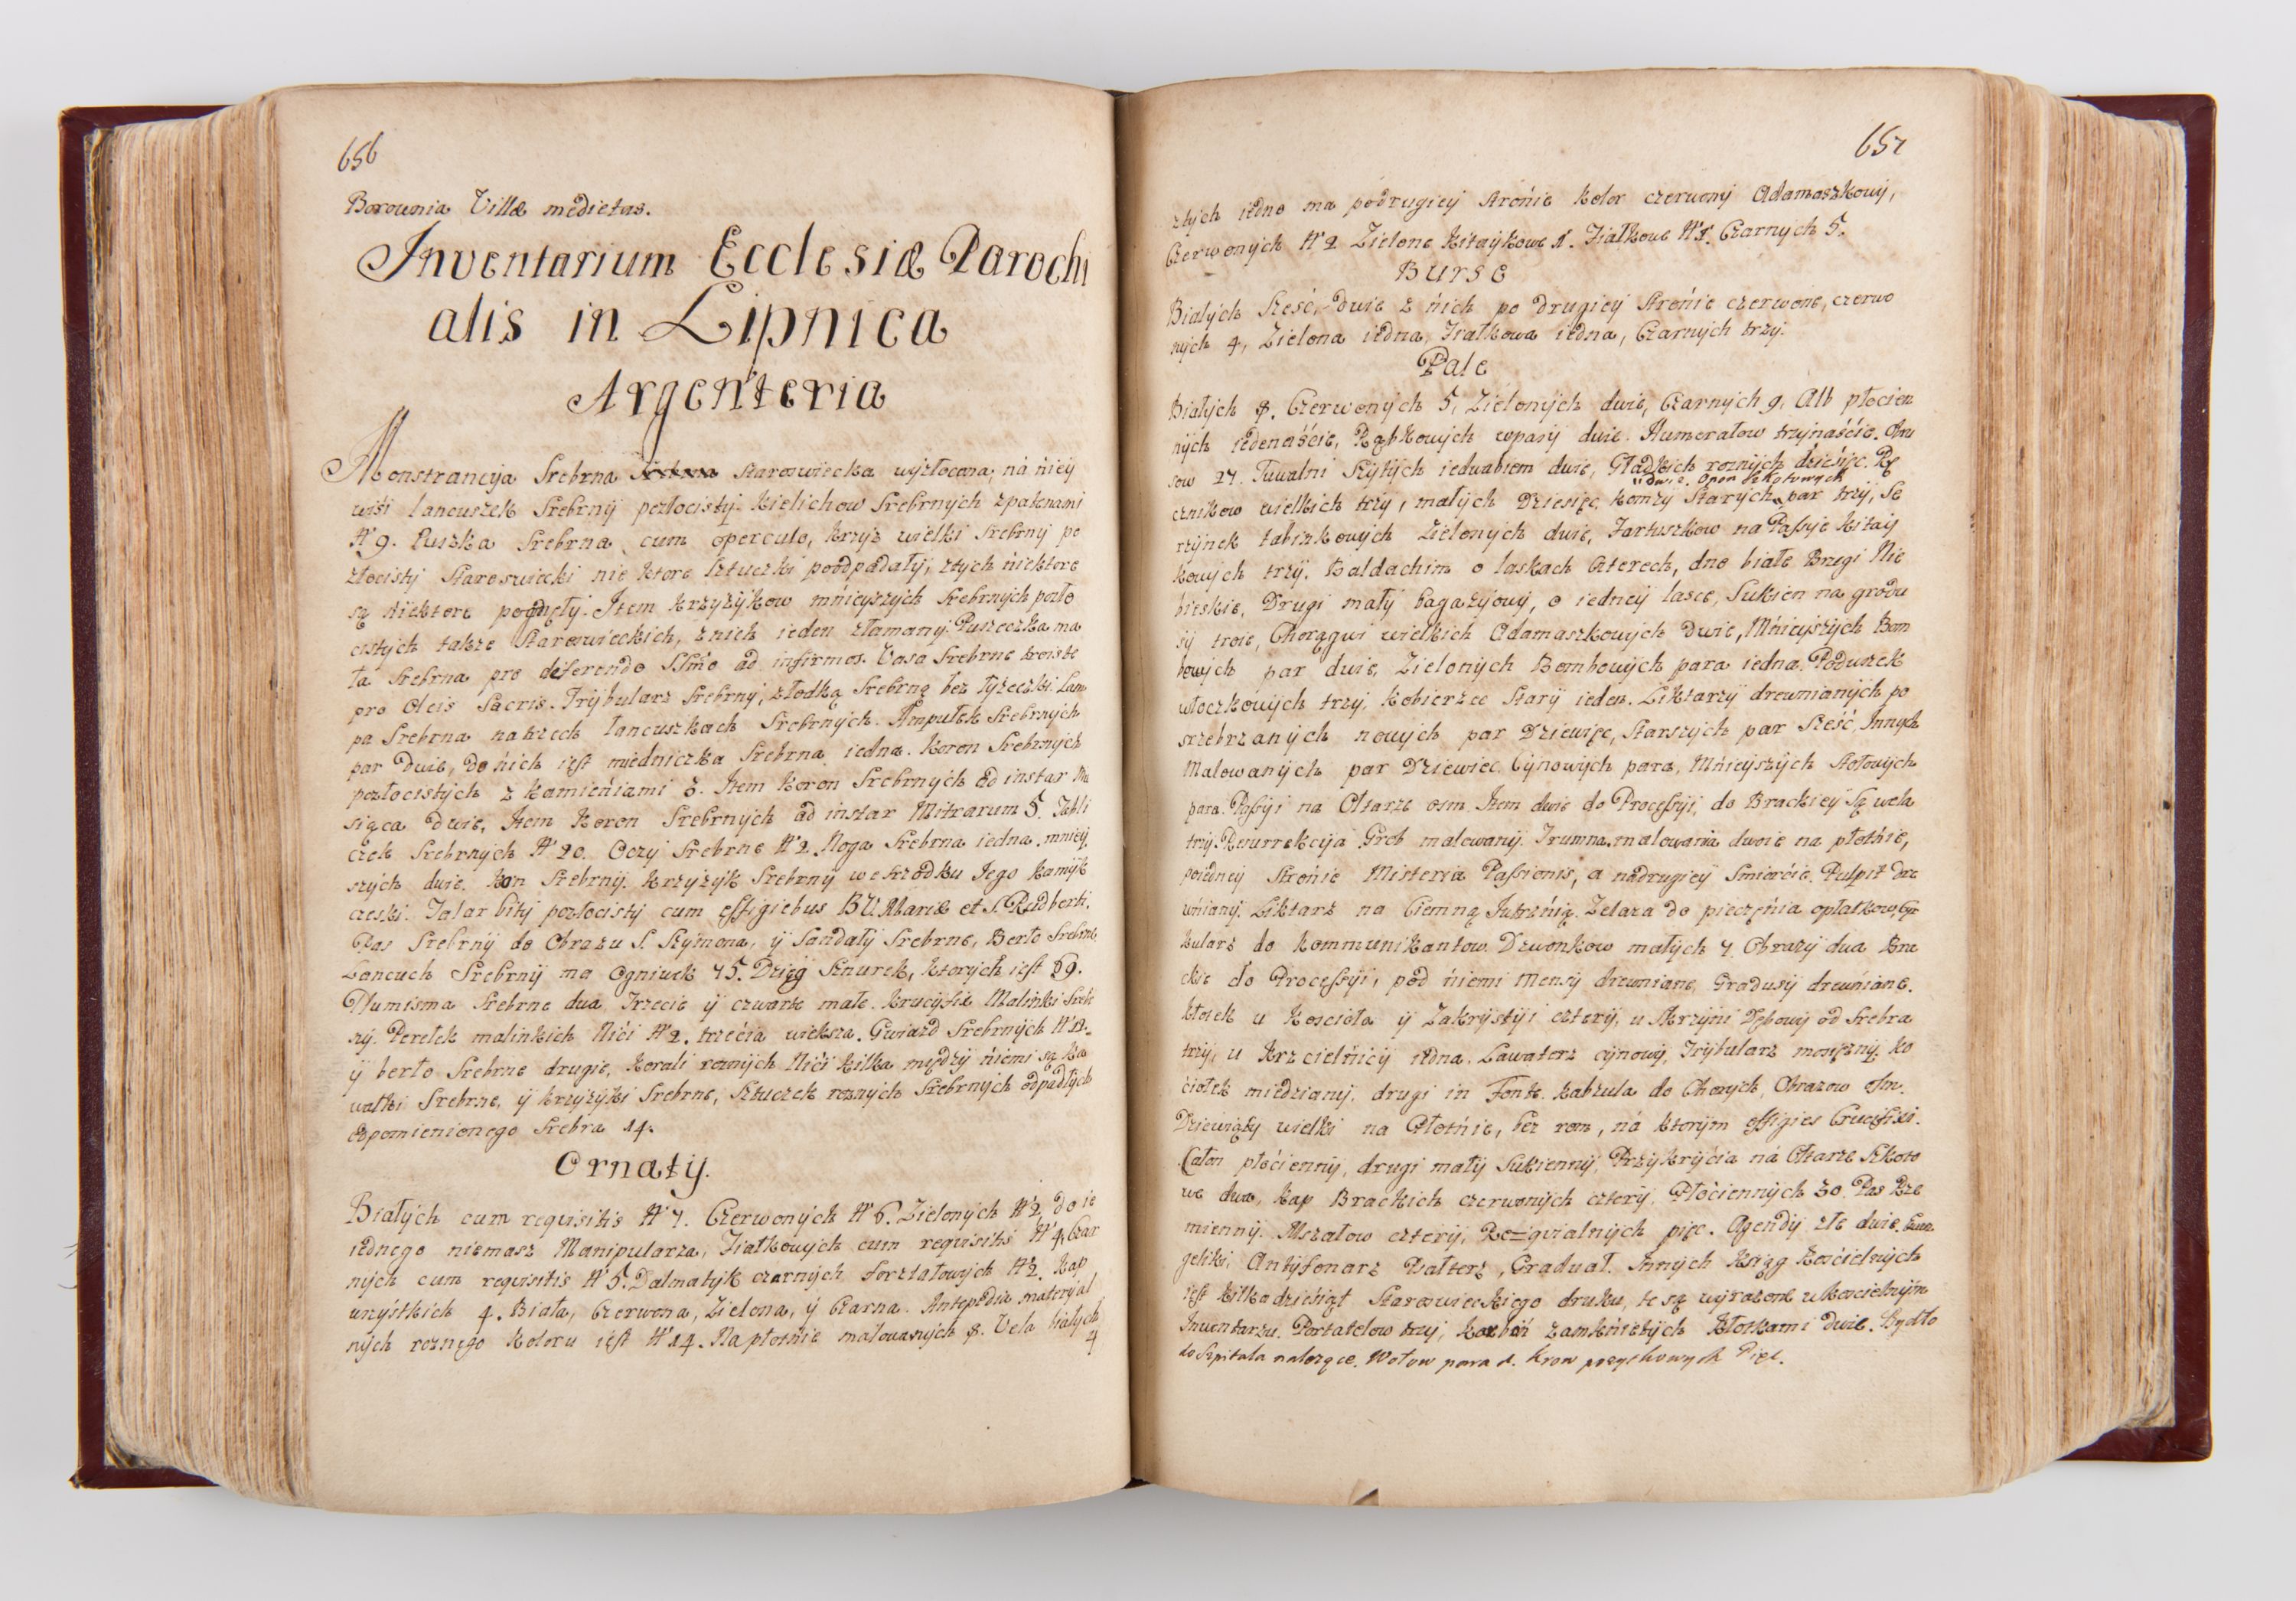 656
Borownia Villæ medietas.
Inventarium Ecclesiæ Parochi
alis in Lipnica
Argenteria
Monstrancyja Srebrna staroswiecka wyzłocona, ná niey
wiśi lancuszek Srebrny pozłocisty. Kielichow Srebrnych zpatenami
N° 9. Puszka Srebrna cum operculo, krzyż wielki Srebrny po
złocisty Staroswiecki nie ktore sztuczki poodpadały, ztych niektore
są niektore pogięły. Item krzyżykow mnieyszych Srebrnych pozło
cistych takze Staroswieckich, znich ieden złamany. Puszeczka ma
ła Srebrna pro deferendo SSmo ad infirmos. Vasa Srebrne troiste
pro Oleis Sacris. Trybularz Srebrny, złodką Srebrną bez łyżeczki Lam
pa Srebrna natrzech łancuszkach Srebrnych. Ampułek Srebrnych
par Dwie, do ńich iest miedniczka Srebrna iedna. Koron Srebrnych
pozłocistych z kamieńiami 3. Item Koron Srebrnych ad instar Mie
siąca Dwie, Item Koron Srebrnych ad instar Mitrarum 5. Tabli
czek Srebrnych N° 20. Oczy Srebrne N° 2. Noga Srebrna iedna, mniey
szych dwie. Kon Srebrny. Krzyżyk Srebrny wesrzodku Iego Kamyk
czeski. Talar bity pozłocisty cum effigiebus BV. Mariæ et S. Rudberti.
Pas Srebrny do Obrazu S. Szymona, y Sandały Srebrne, Berło Srebrne
Lancuch Srebrny ma Ogniwek 75. Dzięg Sznurek, ktorych iest 59.
Numisma Srebrne dua Trzecie y czwarte małe. Krucyfix Malinki Sreb
ny. Perełek malinkich Nići N° 2. trzećia wieksza. Gwiazd Srebrnych N° 12.
y berło Srebrne drugie, Korali roznych Nići kilka między ńiemi są ka
wałki Srebrne, y krzyżyki Srebrne, Sztuczek roznych Srebrnych odpadłych
odpomienionego Srebra 14.
Ornaty.
Białych cum requisitis N° 7. Czerwonych N° 6. Zielonych N° 2. do ie
iednego niemasz Manipularza, Fiałkowych cum requisitis N° 4. Czar
nych cum requisitis N° 5. Dalmatyk czarnych forsztatowych N° 2. Kap
wszystkich 4. Biała, Czerwona, Zielona, y Czarna. Antepedia materyal
nych roznego koloru iest N° 14. Na płotnie malowanych 8. Vela białych
4
657
ztych iedno ma podrugiey Stronie Kolor czerwony Adamaszkowy,
Czerwonych N° 2 Zielone kitaykowe 1. Fiałkowe N° 1. Czarnych 5.
Burse
Białych Sześć, Dwie z ńich po drugiey Stronie czerwone, czerwo
nych 4, Zielona iedna, Fiałkowa iedna, Czarnych trzy.
Pale
Białych 8. Czerwonych 5, Zielonych dwie, Czarnych 9. Alb płocien
nych iedenaśćie, Rąbkowych wpasy dwie. Humerałow trzynaśćie. Obru
sow 27. Tuwalni Szytych iedwabiem dwie, Gładkich roznych dźieśięc. Rę
dwie. Opon szkotowych
cznikow wielkich trzy, małych Dziesięc. Komży Starych par trzy, Se
rzynek tabinkowych Zielonych dwie, Fartuszkow na Passye kitay
kowych trzy. Baldachim o laskach czterech, dno białe Brzegi Nie
bieskie, Drugi mały bagazyiowy, o iedney lasce, Sukien na grodu
sy troie, Chorągwi wielkich Adamaszkowych Dwie, Mnieyszych Bom
bowych par dwie, Zielonych Bombowych para iedna. Poduszek
włoczkowych trzy, Kobierzec Stary ieden. Liktarzy drewnianych po
srzebrzanych nowych par Dziewięc, Starszych par Sześć, Innych
Malowanych par Dziewiec. Cynowych para, Mnieyszych Stołowych
para. Passyi na Ołtarze osm Item dwie do Processyi, do Brackiey Są wela
trzy. Resurrekcyja Grob malowany. Trumna malowana dwoie na płotnie,
poiedney Stronie Misteria Passionis, a nadrugiey Smierćie. Pulpit Dre
wńiany. Liktarz na Ciemną Iutrznią. Zelaza do pieczęnia opłatkow, Cyr
kularz do kommunikantow. Dzwonkow małych 7. Obrazy dua Bra
ckie do Processyi, pod ńiemi Mensy drewniane, Gradusy drewńiane.
kłotek u Koscioła y Zakrystyi cztery, u Skrzyni Dębowy od Srebra
trzy, u krzcielńicy iedna. Lawaterz cynowy, Trybularz mosiężny, ko
ćiołek miedziany. drugi in Fonte. Kabzula do Chorych, Obrazow osm.
Dziewiąty wielki na Płotńie, bez ram, ná ktorym effigies Crucifixi.
Całon płóćienny, drugi mały Sukienny. Przykryćia ná Ołtarze Szkoto
we dwa, Kap Brackich czerwonych cztery. Płoćiennych 30. Pas Rze
mienny. Mszałow cztery, Requialnych pięc. Agendy złe dwie. Ewan
geliki, Antyfonarz Psałterz, Graduał. Innych Ksiąg kośćielnych
iest kilkadzieśiąt Staroswieckiego druku, te są wyrazone wkoscielnym
Inwentarzu. Portatelow trzy, Karbon zamknietych kłotkami dwie. Bydło
do Szpitala należące. Wołow para 1. Krow pozytkowych Pięć.